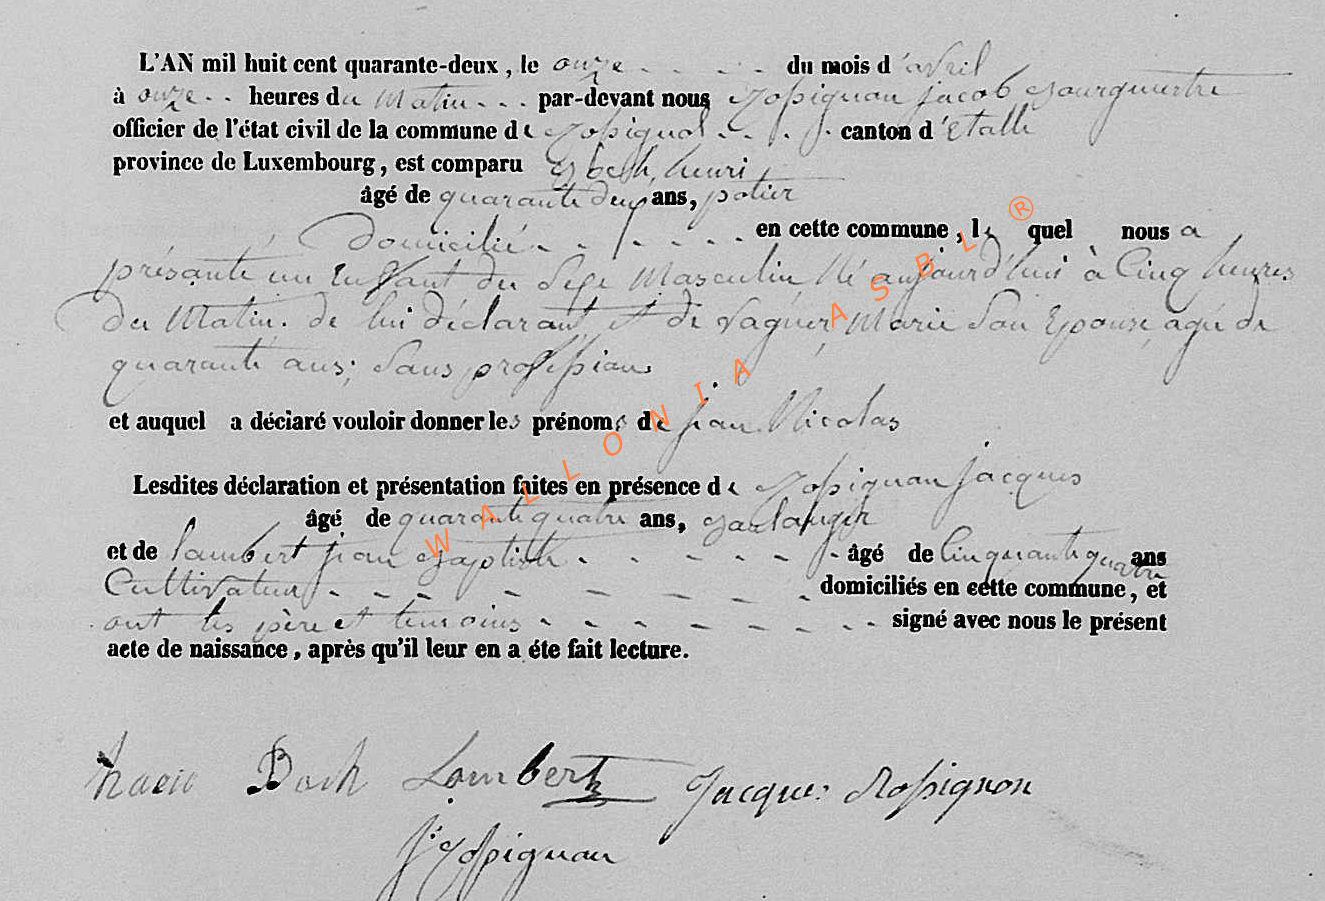 L'AN mil huit cent quarante-deux, le onze du mois d'avril
à onze heures du Matin par-devant nous Rossignon jacob Bourguestre
officier de l'état civil de la commune de Rossignol canton d'Etalle
province de Luxembourg, est comparu henri,
âgé de quarante deux ans, potier
Domicilié en cette commune, le quel nous a
présanté un Enffant du Sexe Masculin Né aujourd'hui à Cinq heures
du Matin. de lui déclarant et de Vagner, Marie Son Epouse, agée de
quarante ans; Sans professions
et auquel a déciaré vouloir donner les prénoms de jean Nicolas
Lesdites déclaration et présentation faites en présence de Rossignon jacques
âgé de quarante quatre ans, Boulanger
et de Lambert jean Baptiste âgé de Cinquante quatre ans
Cultivateur domiciliés en cette commune, et
ont les père et temoins signé avec nous le présent
acte de naissance, après qu'il leur en a éte fait lecture.
Lambert Jacques Rossignon
J. Rossignon
WALLONIA ASBL ®